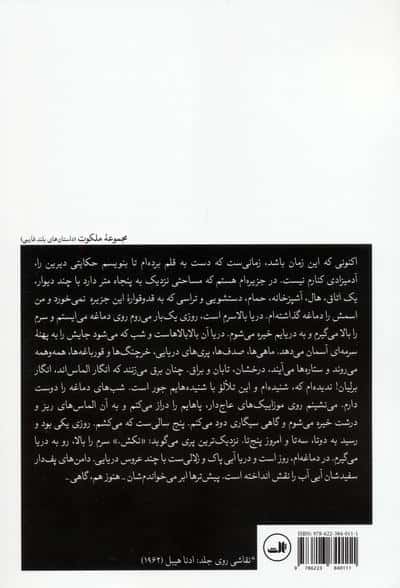 مجموعهٔ ملکوت (داستان‌های بلند فارسی)
اکنونی که این زمان باشد، زمانی‌ست که دست به قلم برده‌ام تا بنویسم حکایتی دیرین را،
آدمیزادی کنارم نیست. در جزیره‌ام هستم که مساحتی نزدیک به پنجاه متر دارد با چند دیوار،
یک اتاق، هال، آشپزخانه، حمام، دستشویی و تراسی که به قدوقوارهٔ این جزیره نمی‌خورد و من
اسمش را دماغه گذاشته‌ام. دریا بالاسرم است، روزی یک‌بار می‌روم روی دماغه می‌ایستم و سرم
را بالا می‌گیرم و به دریایم خیره می‌شوم. دریا آن بالابالاهاست و شب که می‌شود جایش را به پهنهٔ
سرمه‌ای آسمان می‌دهد. ماهی‌ها، صدف‌ها، پری‌های دریایی، خرچنگ‌ها و قورباغه‌ها، همه‌وهمه
می‌روند و ستاره‌ها می‌آیند، درخشان، تابان و براق. چنان برق می‌زنند که انگار الماس‌اند، انگار
برلیان! ندیده‌ام که، شنیده‌ام و این تلألؤ با شنیده‌هایم جور است. شب‌های دماغه را دوست
دارم. می‌نشینم روی موزاییک‌های عاج‌دار، پاهایم را دراز می‌کنم و به آن الماس‌های ریز و
درشت خیره می‌شوم و گاهی سیگاری دود می‌کنم. پنج سالی‌ست که می‌کشم. روزی یکی بود و
رسید به دوتا، سه‌تا و امروز پنج‌تا. نزدیک‌ترین پری می‌گوید: «نکش.» سرم را بالا، رو به دریا
می‌گیرم. در دماغه‌ام، روز است و دریا آبی پاک و زلالی‌ست با چند عروس دریایی. دامن‌های پف‌دار
سفیدشان آبی آب را نقش انداخته است. پیش‌ترها ابر می‌خواندم‌شان ـ هنوز هم، گاهی.ـ
*نقاشی روی جلد: ادنا هیبل (۱۹۶۲)
ثالث
ISBN: 978-622-384-011-1
9 786223 840111